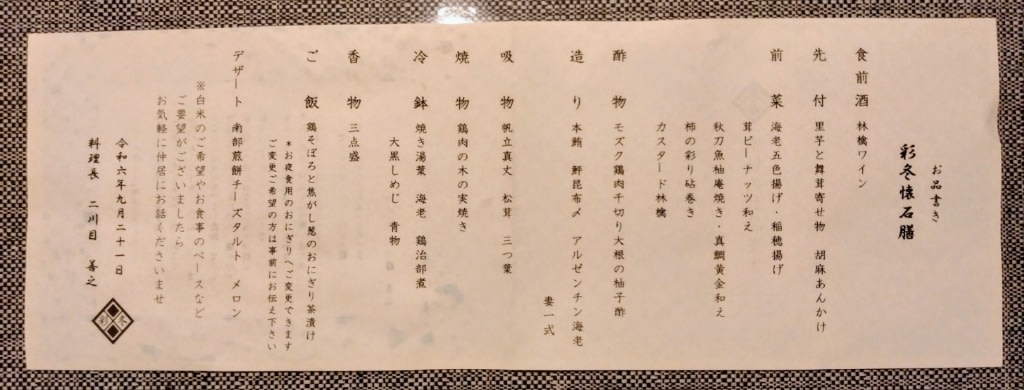 お品書き
彩冬懐石膳
食前酒 林檎ワイン
先付 里芋と舞茸寄せ物 胡麻あんかけ
前菜 海老五色揚げ・稲穂揚げ
茸ピーナッツ和え
秋刀魚柚庵焼き・真鯛黄金和え
柿の彩り砧巻き
カスタード林檎
酢物 モズク鶏肉千切り大根の柚子酢
造り 本鮪 鮃昆布〆 アルゼンチン海老
妻一式
吸物 帆立真丈 松茸 三つ葉
焼物 鶏肉の木の実焼き
冷鉢 焼き湯葉 海老 鶏治部煮
大黒しめじ 青物
香物 三点盛
ご飯 鶏そぼろと焦がし葱のおにぎり茶漬け
*お夜食用のおにぎりへご変更できます
ご変更ご希望の方は事前にお伝え下さい
デザート 南部煎餅チーズタルト メロン
※白米のご希望やお食事のペースなど
ご要望がございましたら
お気軽に仲居にお話くださいませ
令和六年九月二十一日
料理長 二川目 善之